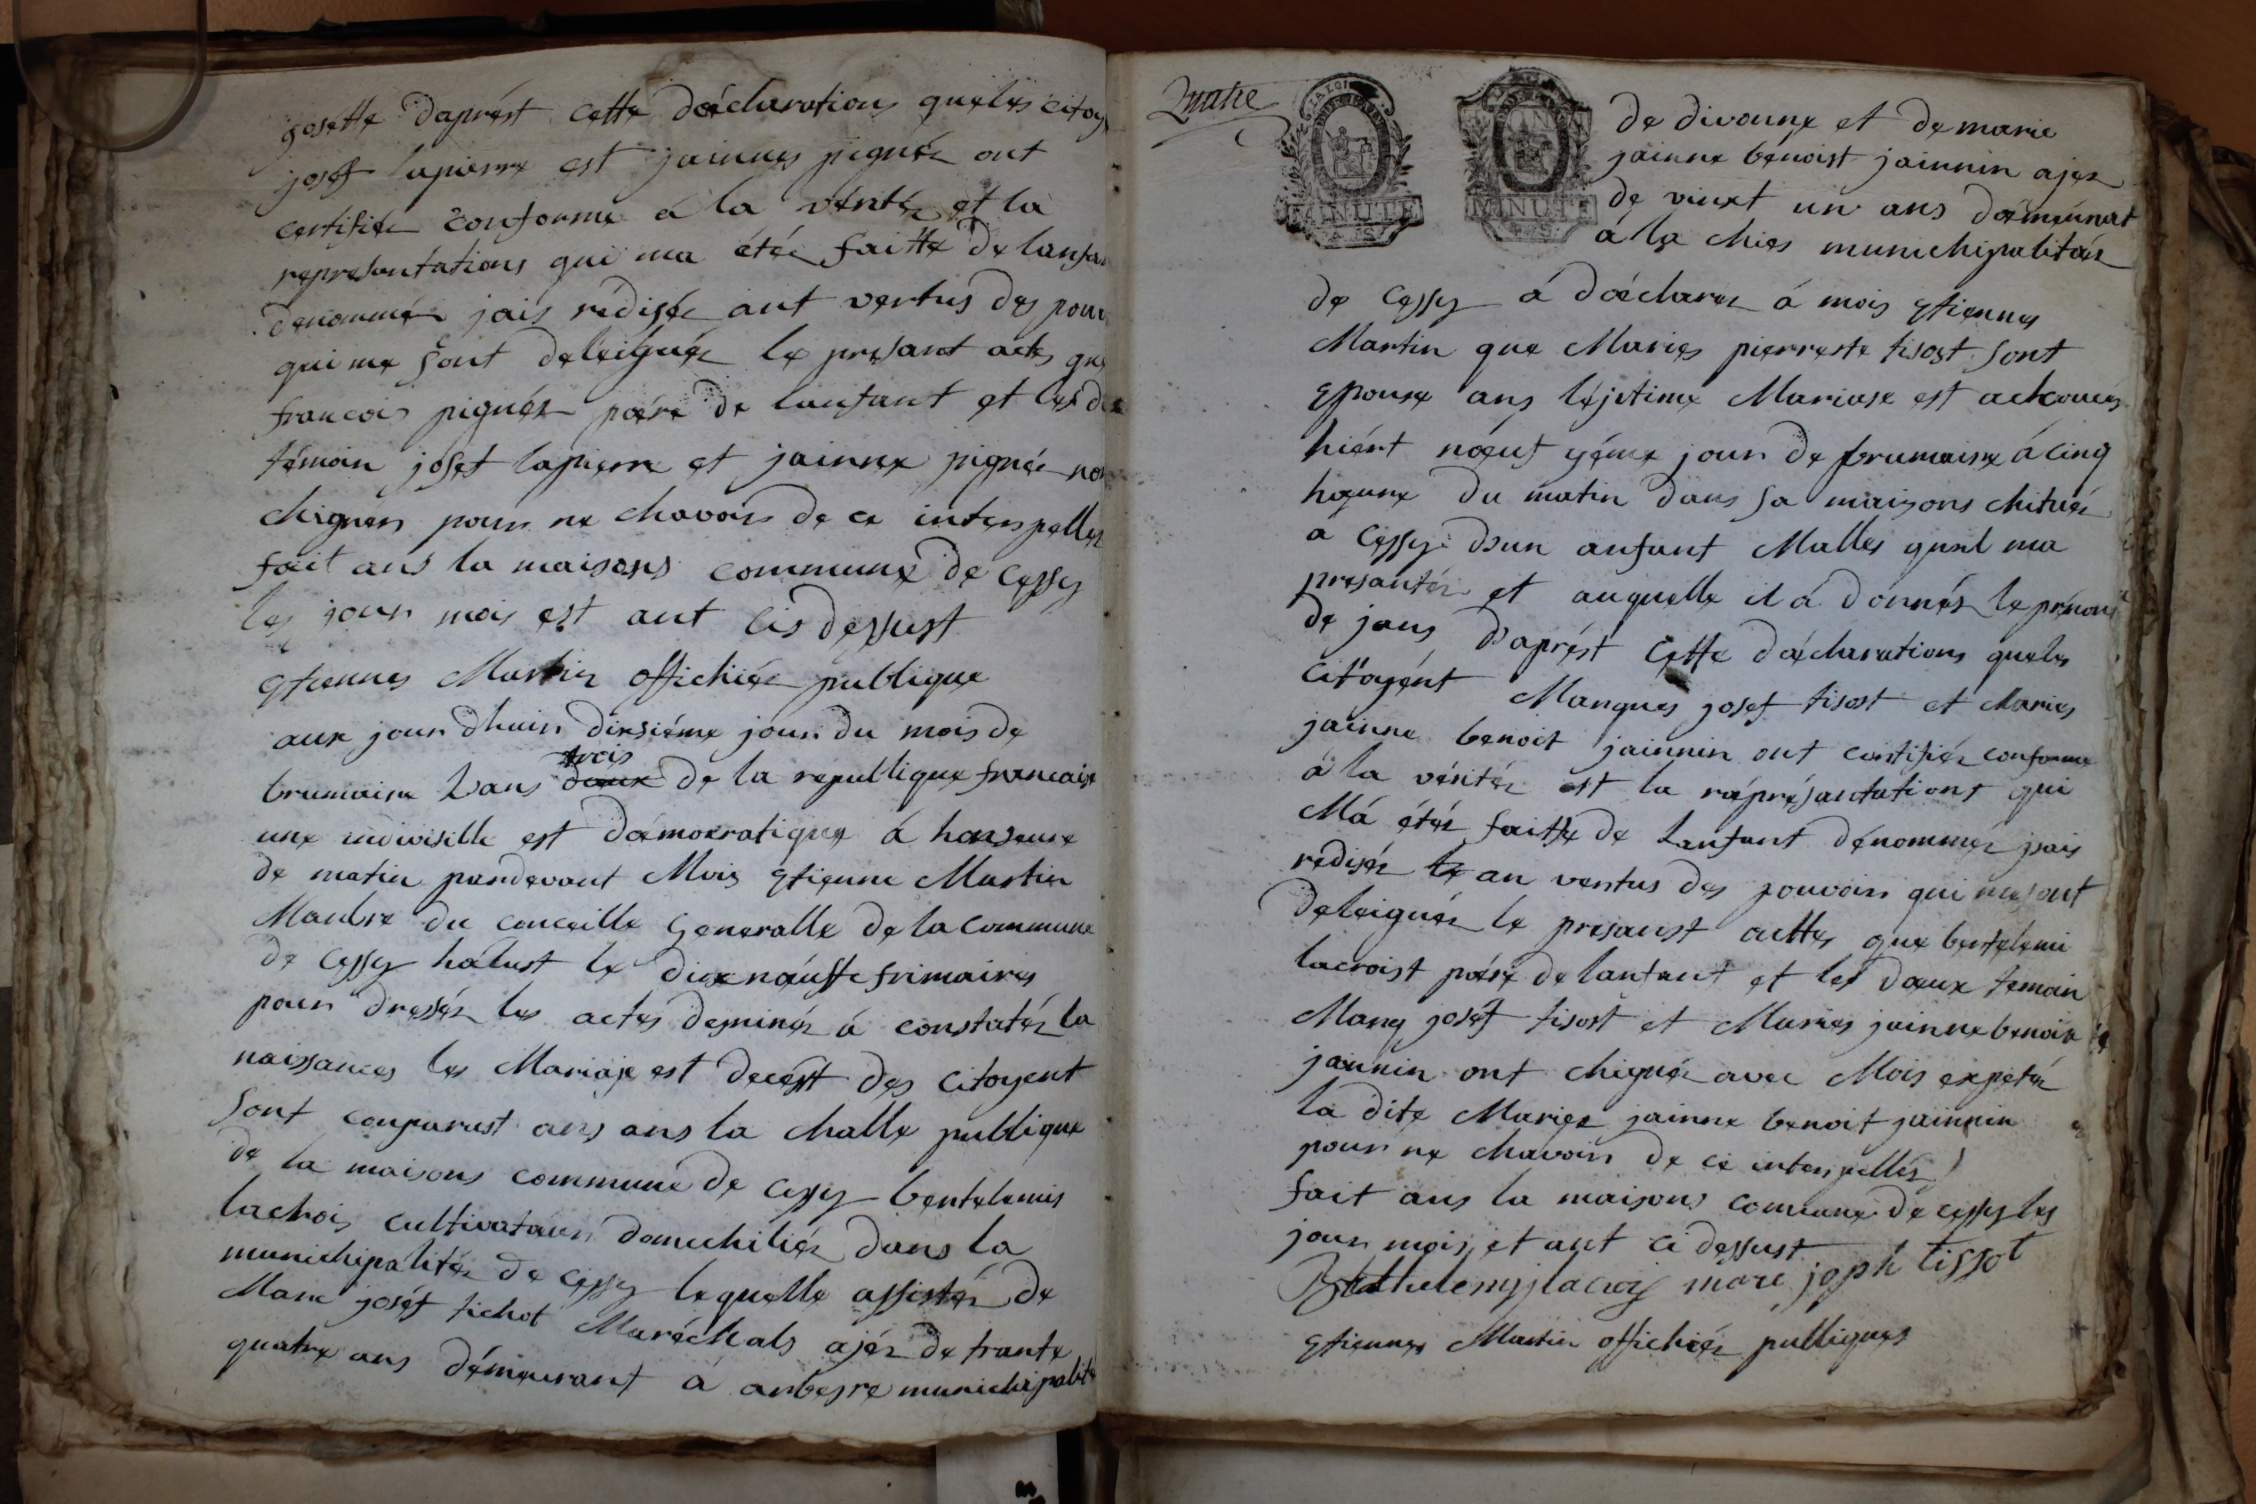 josette daprést cette déclarations queles citoy
josef lapierre est jainnes pignéz ont
certifiéz conforme á la véritéz et la
représantátions qui ma étéz faitte de lanfan
denomméz jais rédiséz ant vertus des pouv
qui me sont deleiguéz le présant actes que
francois pignéz pére de lanfant et les d
témoin josef lapierre et jainne pignéz non
chignéz pour ne chavoir de ce interpelléz
fait ans la maisons commune de Cessy
les jour mois est ant cis dessust
etiennes Martin offichiéz publique
aux jour dhuis dixsiéme jour du mois de
trois
brumaire Lans deux de la republique francaise
une indivisible est démocratique á honseure
de matin pardevant Mois etienne Martin
Manbre du conceille generalle de la Commune
de Cessy hélust le dix néuffe frimaires
pour dresséz les actés desminéz á constatéz la
naissances les Mariaje est decést des citoyent
sont conparust ans ans la challe publique
de la maisons commune de Cessy bertelemis
lachois cultivateur domichiliéz dans la
munichipalitéz de Cessy lequelle assistéz de
Marc joséf tichot Maréchals ajéz de trante
quatre ans démeurant á arbesre munichipalité
Quatre
LA LOI
MINUTE
MINUTE
de divoune et de marie
jainne bénoist jainnin ajéz
de vinxt un ans démeurat
á la chies munichipalitéz
de Cessy á déclaréz á mois etiennes
Martin que Maries pierreste tisost sont
epouse ans léjitime Mariase est achouées
hiért nœuf yéme jour de brumaire á cinq
heure du matin dans sa maisons chituéz
a Cessy dun anfant Malles quil ma
présantéz et auquelle il á donnés le prénons
de jans daprést Cette déclarations queles
Citoyént Marques josef tisost et Maries
jainne benoit jainnin ont certifiéz conforme
á la véritéz est la réprésantations qui
Má étéz faitte de Lanfant dénomméz jais
rediséz le an vertus des pouvoir qui me sont
deleiguéz le présanst acttes que bertelemi
lacroist pére de lanfant et les deux temoin
Marq joséf tisost et Maries jainne benoix
jainnin ont chignéz avec Mois expetéz
la dite Mariez jainne benoit jainnin
pour ne chavoir de ce interpelléz
fait ans la maisons commune de cessy les
jour mois et ant ci dessust
Barthelemy lacroix marc joph tissot
etiennes Martin offichiéz publiques